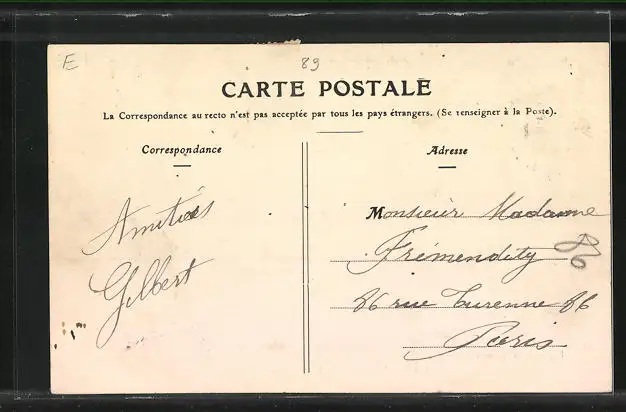 E
89
CARTE POSTALE
La Correspondance au recto n'est pas acceptée par tous les pays étrangers. (Se renseigner à la Poste).
Correspondance
Adresse
Amitiés
Gilbert
Monsieur Madame
Frémendity
86 rue Turenne 86
Paris